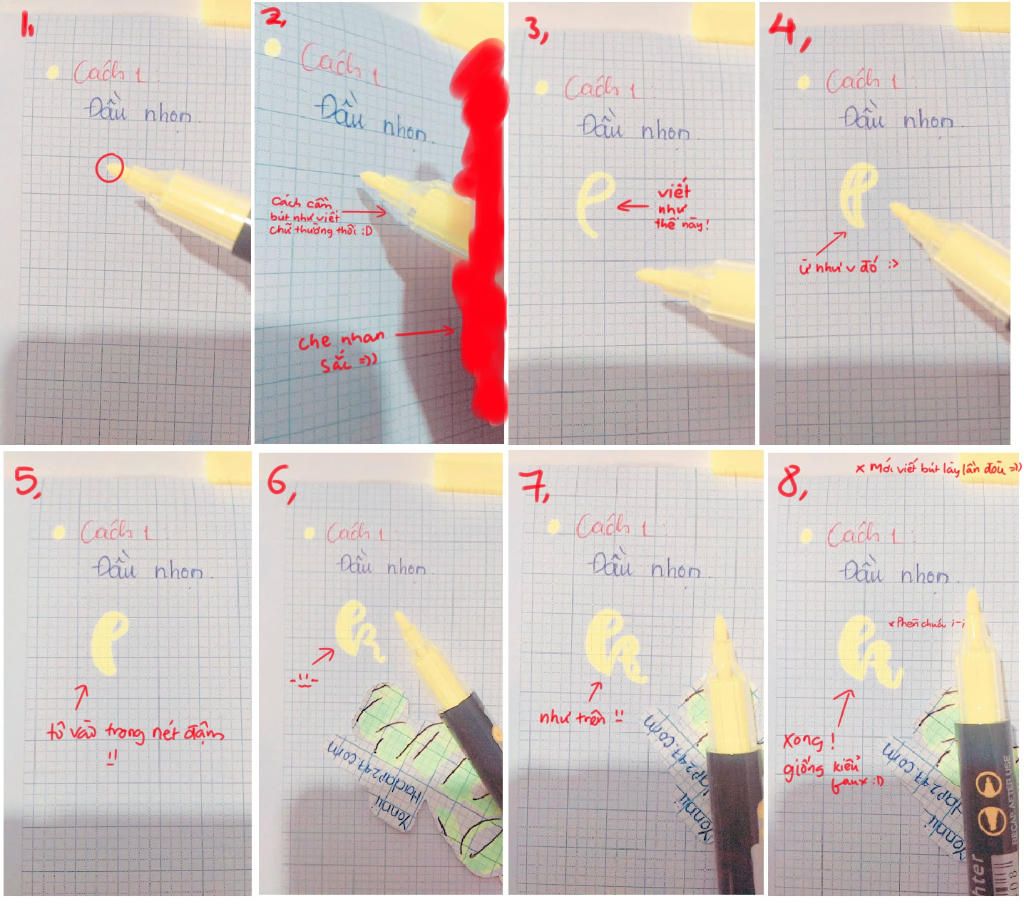 1,
Cách 1 :
Đầu nhọn.
2,
Cách 1 :
Đầu nhọn.
Cách cầm
bút như viết
chữ thường thôi :D
che nhan
sắc =))
3,
Cách 1 :
Đầu nhọn.
viết
như
thế này!
4,
Cách 1 :
Đầu nhọn.
ừ như v đó :>
5,
Cách 1 :
Đầu nhọn.
tô vào trong nét đậm
!!
6,
Cách 1 :
Đầu nhọn.
Yannii
Hocap247.com
7,
Cách 1 :
Đầu nhọn.
như trên !!
Yannii
8,
x Mới viết bút này lần đầu =))
Cách 1 :
Đầu nhọn.
Xong !
giống kiểu
faux :D
Yannii
RECAP AFTER USE
hter